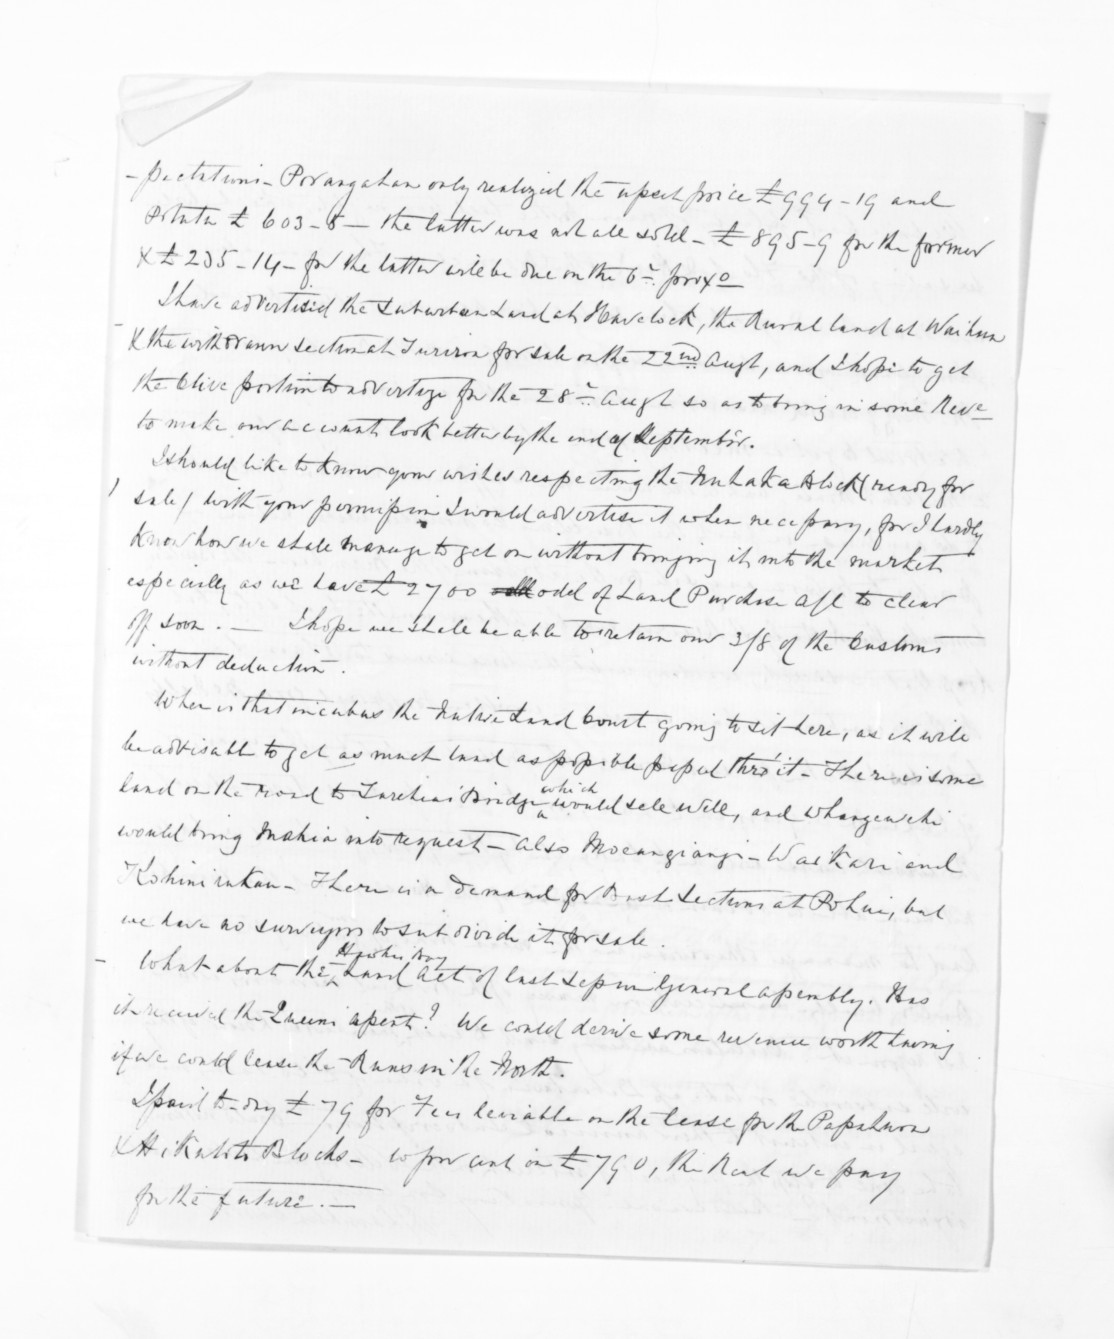 -pectations - Porangahau only realized the upset price £994-19 and
Potutu £603-5 - the latter was not all sold - £895-9 for the former
& £235-14 - for the latter will be due on the 6th proxo
I have advertised the Suburban Land at Havelock, the Rural land at Waihua
& the withdrawn section at Turiroa for sale on the 22nd Augt, and I hope to get
the Clive portion to advertize for the 28th Augt so as to bring in some Reve
to make our account look better by the end of September.
I should like to know your wishes respecting the Nuhaka Block (ready for
sale) with your permission I would advertise it when necessary, for I hardly
know how we shall manage to get on without bringing it into the market
especially as we have £2700 odd of Land Purchase a/c to clear
off soon. - I hope we shall be able to retain our 3/8 of the Customs
without deduction.
When is that incubus the Native Land Court going to sit here, as it will
be advisable to get as much land as possible passed thro' it - There is some
land on the road to Turekina Bridge which would sell well, and Whangawehi
would bring Mahia into request - also Moeangiangi - Waikari and
Kohinirakau - There is a demand for Bush Sections at Pohui, but
we have no surveyors to subdivide it for sale.
What about the Hawkes Bay Land Act of last Sess in General Assembly. Has
it received the Queens assent? We could derive some revenue worth having
if we could lease the Runs in the North.
I paid to-day £79 for Fees leviable on the lease for the Papahuru
& Hikatoto Blocks - 10 per cent on £790, the Rent we pay
for the future. -